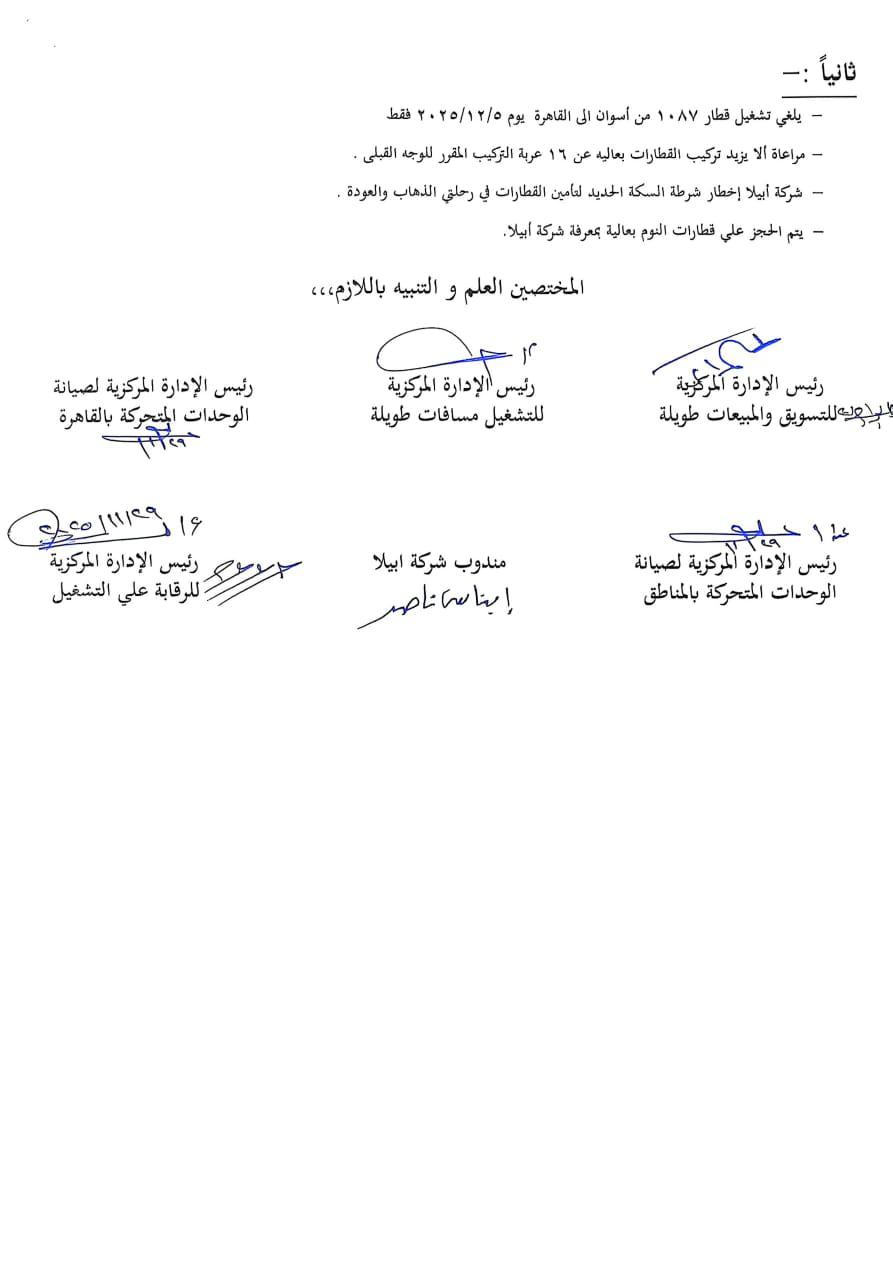 ثانياً :–
– يلغي تشغيل قطار ١٠٨٧ من أسوان الى القاهرة يوم ٢٠٢٥/١٢/٥ فقط
– مراعاة ألا يزيد تركيب القطارات بعاليه عن ١٦ عربة التركيب المقرر للوجه القبلى .
– شركة أبيلا إخطار شرطة السكة الحديد لتأمين القطارات في رحلتي الذهاب والعودة .
– يتم الحجز علي قطارات النوم بعالية بمعرفة شركة أبيلا.
المختصين العلم و التنبيه باللازم،،،
رئيس الإدارة المركزية
للتسويق والمبيعات طويلة
رئيس الإدارة المركزية
للتشغيل مسافات طويلة
رئيس الإدارة المركزية لصيانة
الوحدات المتحركة بالقاهرة
١١/٢٩
١١/٢٩
رئيس الإدارة المركزية لصيانة
الوحدات المتحركة بالمناطق
مندوب شركة ابيلا
إيناس ناصر
٢٠٢٥/١١/٢٩
رئيس الإدارة المركزية
للرقابة علي التشغيل